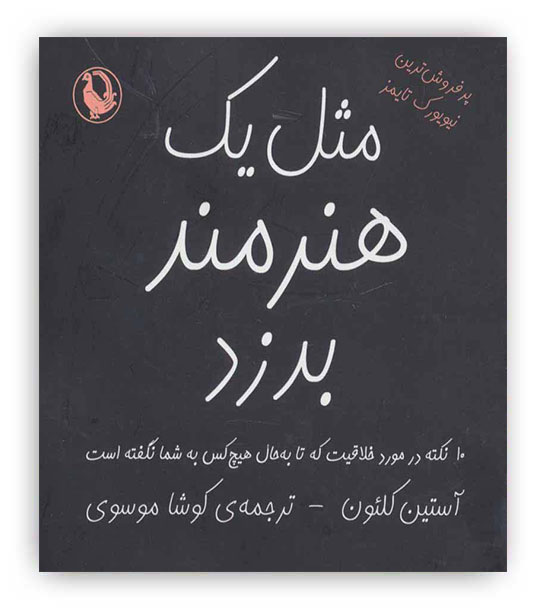 پرفروش‌ترین
نیویورک تایمز
مثل یک
هنرمند
بدزد
۱۰ نکته در مورد خلاقیت که تا به‌حال هیچ‌کس به شما نگفته است
آستین کلئون – ترجمه‌ی کوشا موسوی